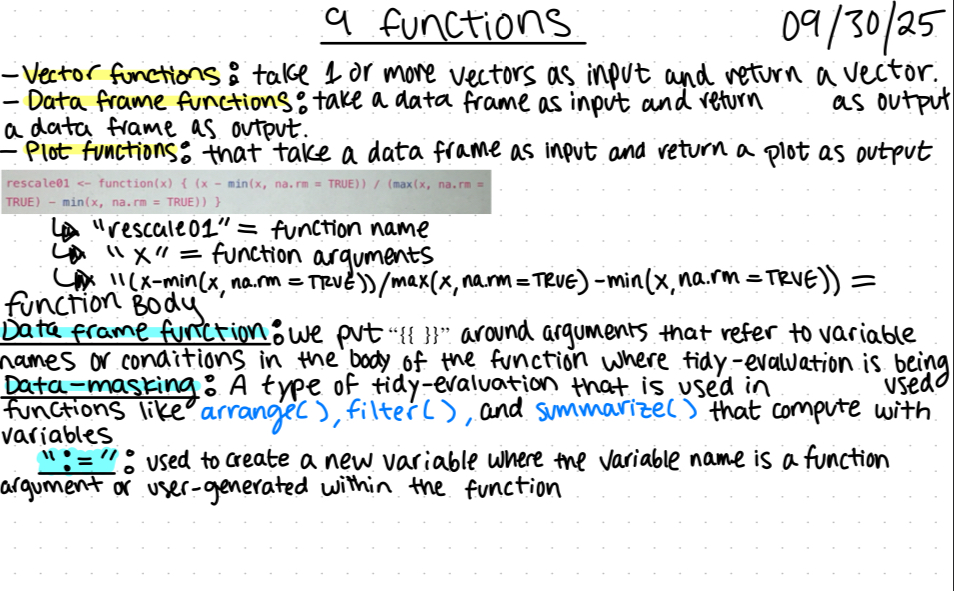 9 functions 09/30/25
- Vector functions: take 1 or more vectors as input and return a vector.
- Data frame functions: take a data frame as input and return as output
a data frame as output.
- Plot functions: that take a data frame as input and return a plot as output
rescale01 <- function(x) { (x - min(x, na.rm = TRUE)) / (max(x, na.rm =
TRUE) - min(x, na.rm = TRUE)) }
↳ "rescale01" = function name
↳ "x" = function arguments
↳ "(x-min(x, na.rm = TRUE))/max(x, na.rm = TRUE) - min(x, na.rm = TRUE)) =
function Body
Data frame function: we put "{{ }}" around arguments that refer to variable
names or conditions in the body of the function where tidy-evaluation is being
used
Data-masking: A type of tidy-evaluation that is used in
functions like arrange(), filter(), and summarize() that compute with
variables
":=": used to create a new variable where the variable name is a function
argument or user-generated within the function